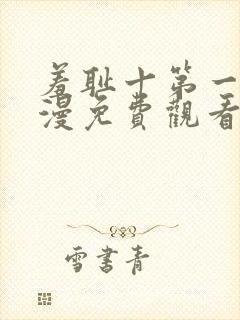 羞耻十第一
漫免費觀看
雪書青